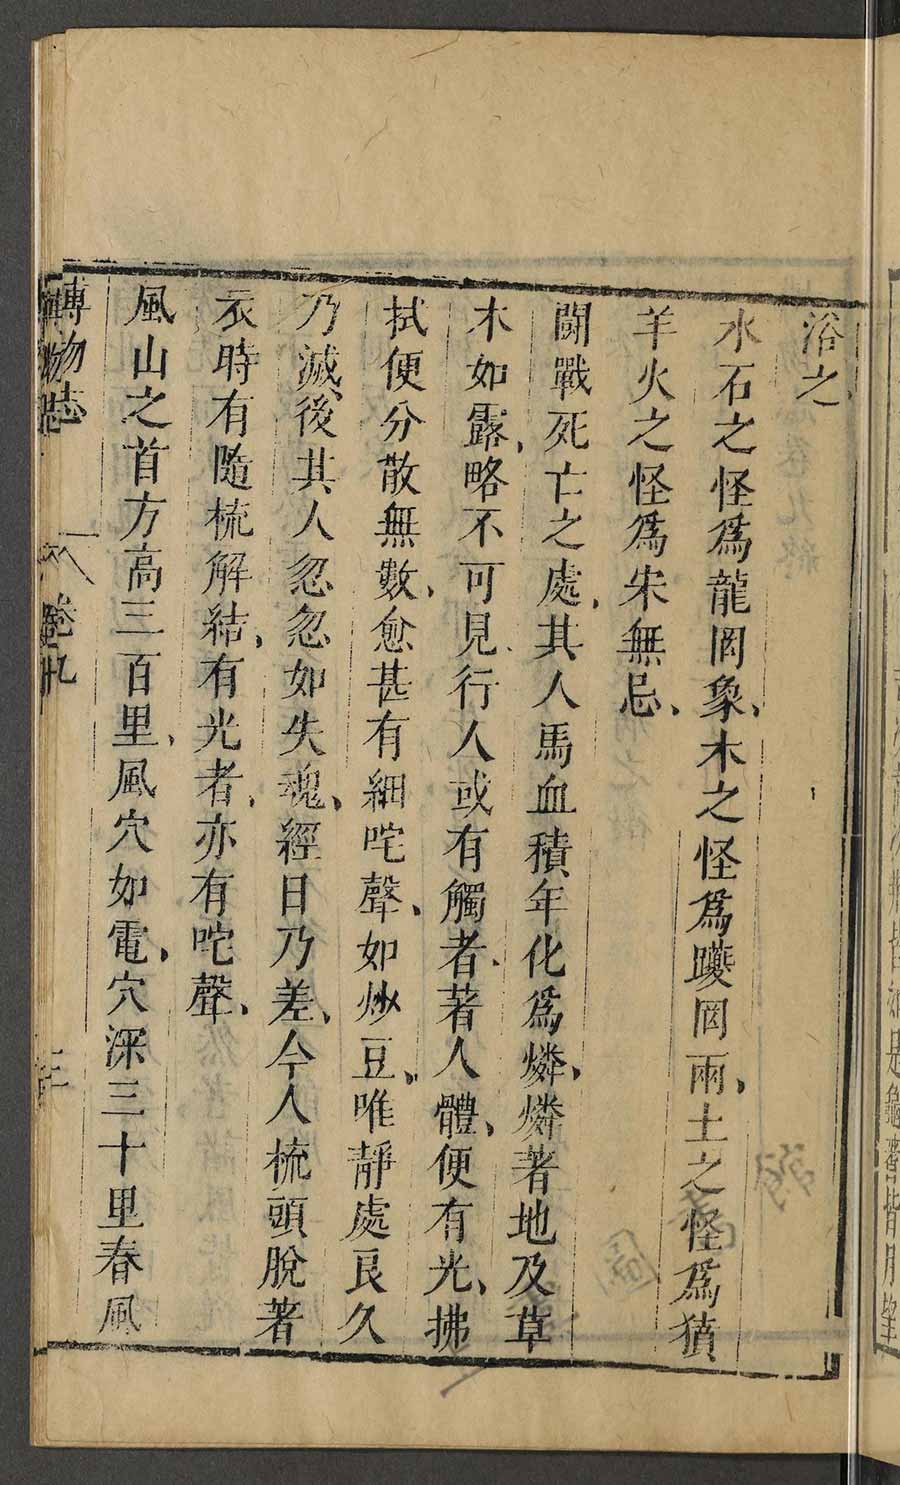 浴之
水石之怪爲龍罔象、木之怪爲躨罔兩、土之怪爲獖
羊火之怪爲宋無忌、
鬭戰死亡之處、其人馬血積年化爲燐、燐著地及草
木如露、略不可見、行人或有觸者、著人體、便有光、拂
拭便分散無數、愈甚有細咤聲、如炒豆、唯靜處良久
乃滅、後其人忽忽如失魂、經日乃差、今人梳頭脫著
衣時有隨梳解結、有光者、亦有咤聲、
風山之首方高三百里、風穴如電、穴深三十里春風
博物志
卷九